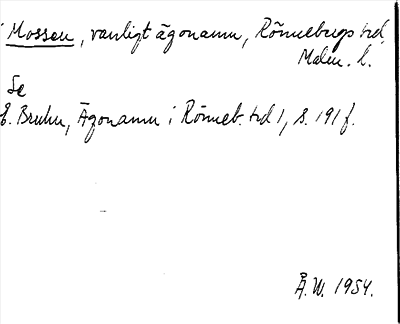 Mossen, vanligt ägonamn, Rönnebergs hd,
Malm. l.
Se
E. Bruhn, Ägonamn i Rönneb. hd 1, s. 191 f.
Å.W. 1954.